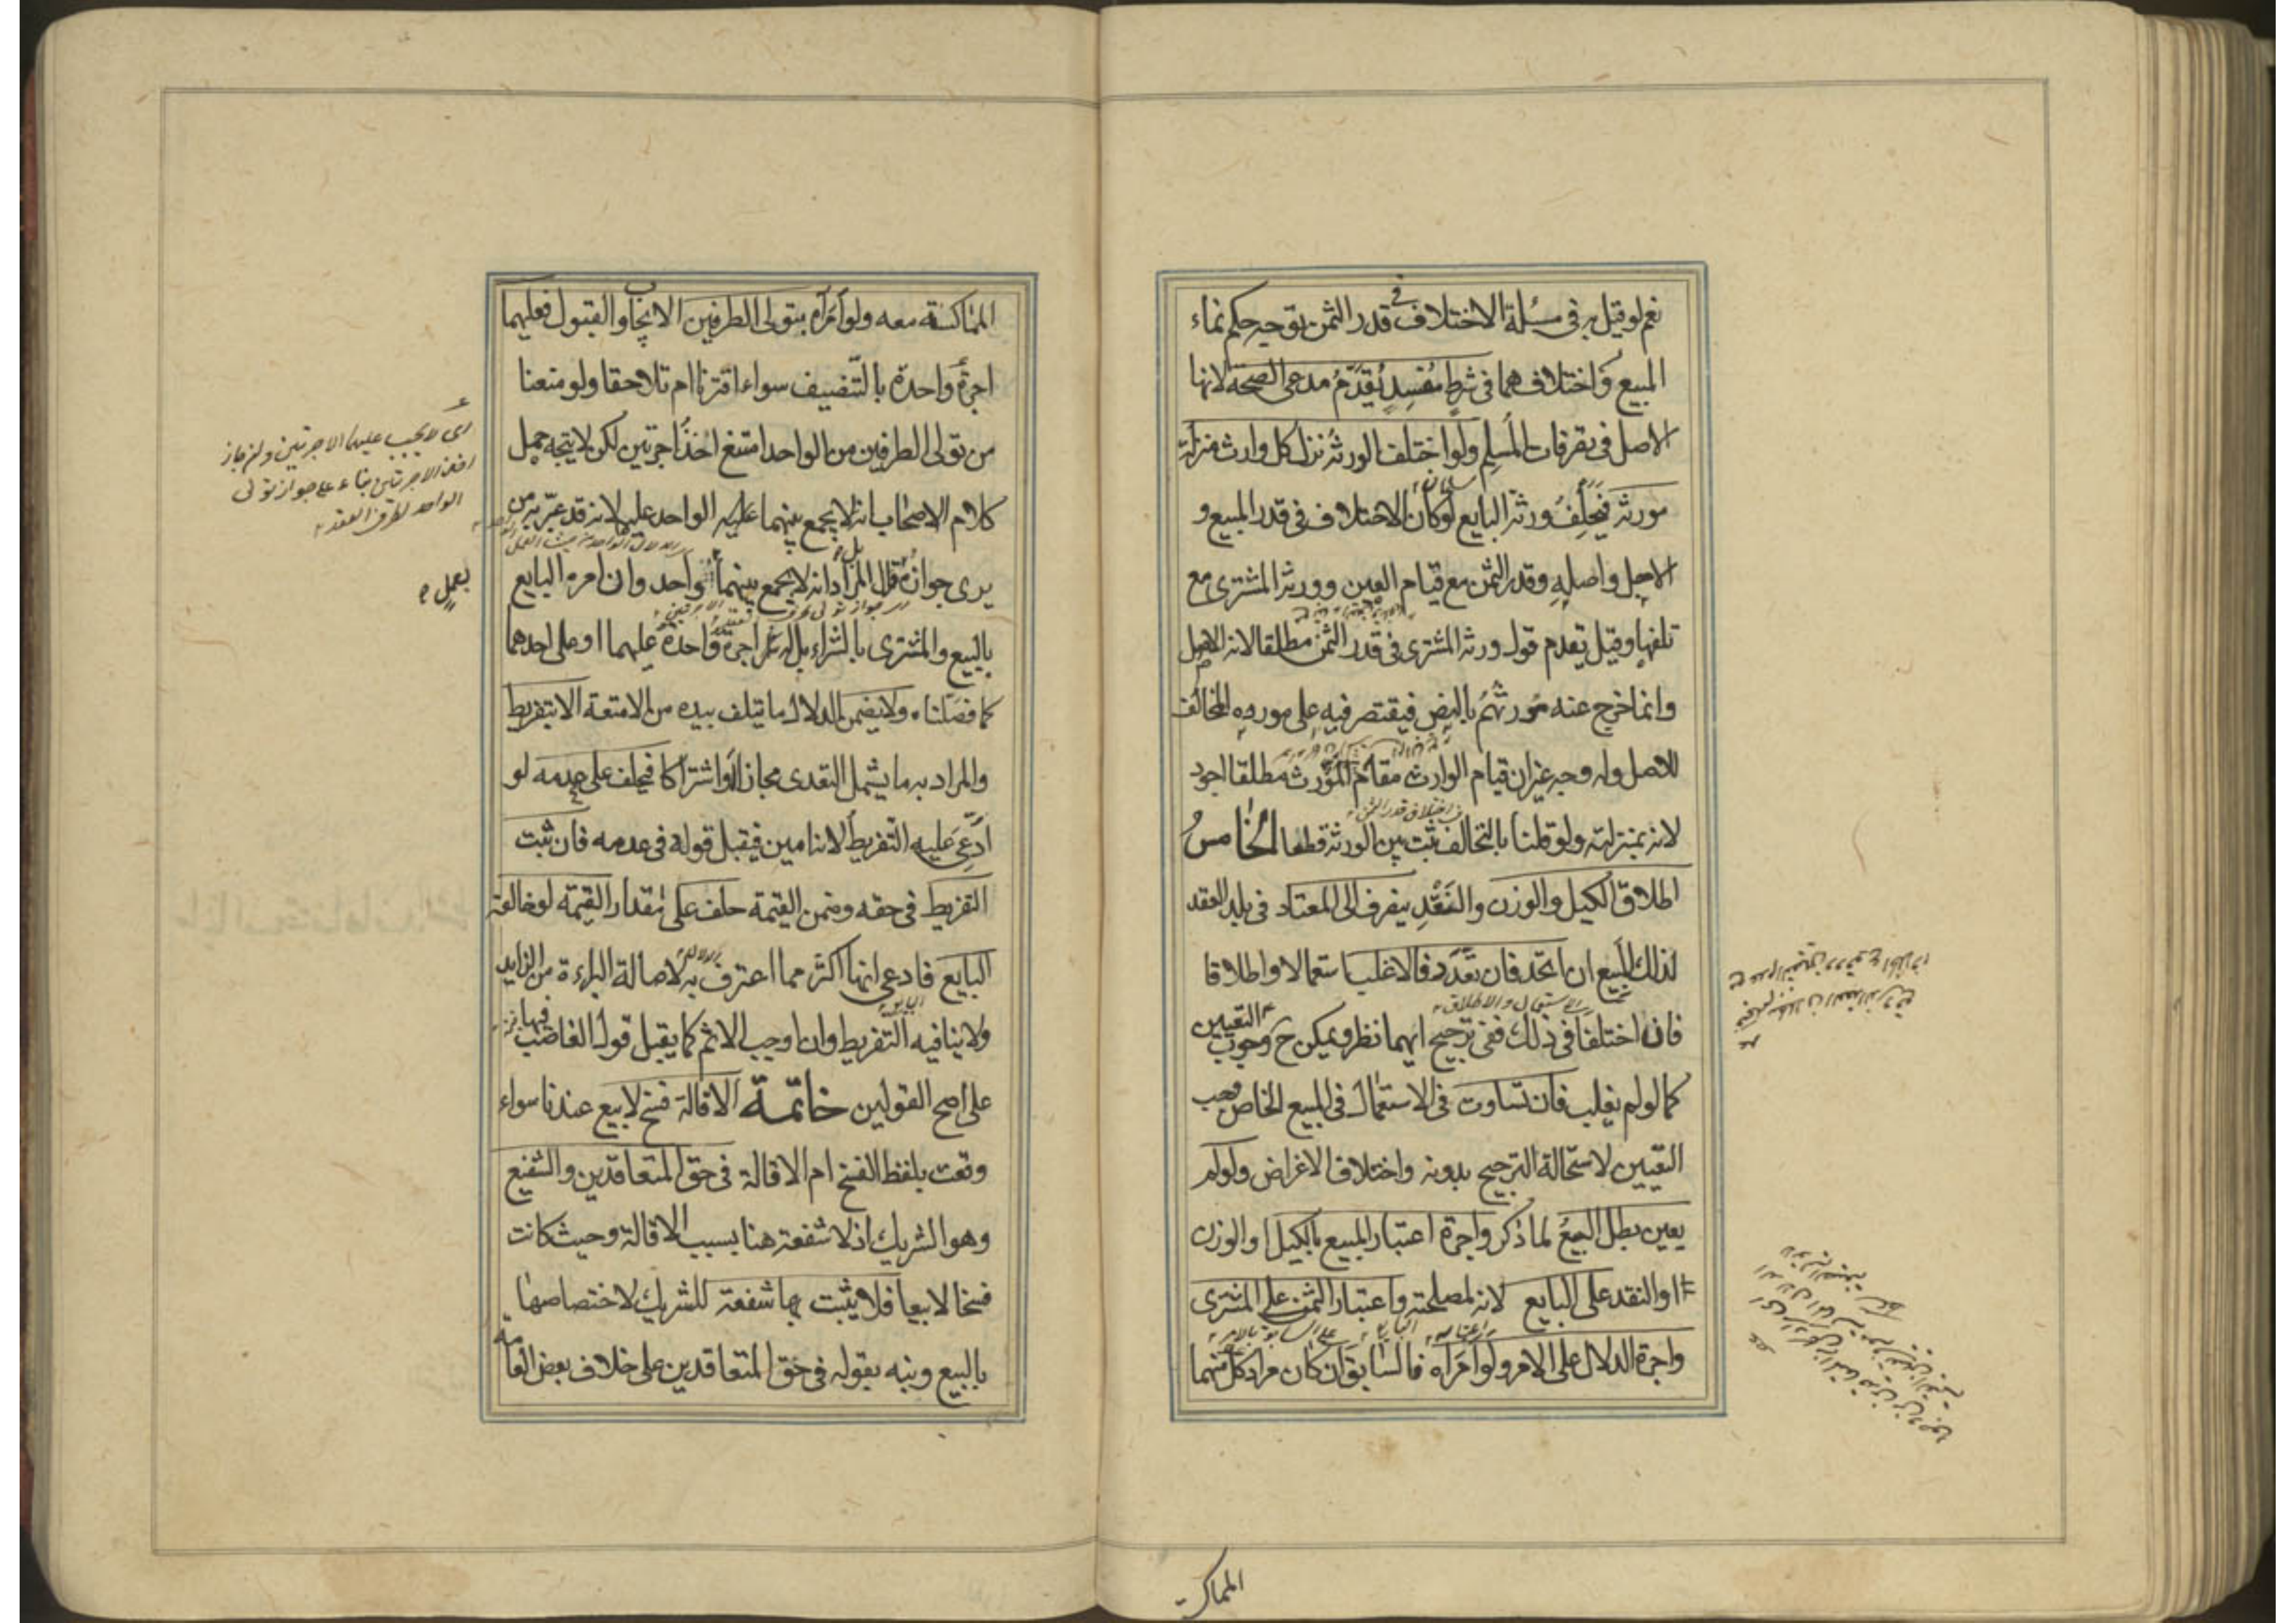 نعم لو قيل به في مسئلة الاختلاف في قدر الثمن توجه حكم نماء
المبيع واختلافهما في شرطٍ مُفسِدٍ يُقَدَّمُ مدعى الصحة لانها
الاصل في تصرفات المُسلِم ولو اختلف الورثة نزل كل وارث منزلة
مورثه فيحلِفُ ورثة البايع لو كان الاختلاف في قدر المبيع و
الاجل واصلِهِ وقدر الثمن مع قيام العين وورثة المشترى مع
تلفها وقيل يقدم قول ورثة المشترى في قدر الثمن مطلقا لانه الاصل
وانما خرج عنه مُورثهُم بالنص فيقتصر فيه على مورده المخالف
للاصل وله وجه غير ان قيام الوارث مقام المُوَرِّث مطلقا اجود
لانه بمنزلته ولو قلنا بالتحالف ثبت بين الورثة قطعا الخامسُ
اطلاق الكيل والوزن والنَقْدِ ينصرف الى المعتاد في بلد العقد
لذلك المبيع ان اتحد فان تعَدَّد فالاغلب استعمالا واطلاقا
فان اختلفا في ذلك ففي ترجيح ايهما نظر ويمكن ح وجوب التعيين
كما لو لم يغلب فان تساوت في الاستعمال في المبيع الخاص وجب
التعيين لاستحالة الترجيح بدونه واختلاف الاغراض ولو لم
يعين بطل البيعُ لما ذكر واجرة اعتبار المبيع بالكيل او الوزن
او النقد على البايع لانه لمصلحته واعتبار الثمن على المشترى
واجرة الدلال على الامر ولو امَرَاه فالسابق ان كان مراد كل منهما
المماكـ
المماكسة معه ولو امَراه بتولى الطرفين الايجاب والقبول فعليهما
اجرةً واحدة بالتّنصيف سواء اقترنا ام تلاحقا ولو منعنا
من تولى الطرفين من الواحد امتنع اخذُ اجرتين لكن لا يتجه حمل
كلام الاصحاب انه لا يجمع بينهما عليه لانه قد عبّر به من
يرى جوازهُ بل المراد انه لا يجمع بينهما لواحد وان امره البايع
بالبيع والمشترى بالشراء بل له اجرة واحدة عليهما او على احدهما
كما فصّلناه ولا يضمن الدلال ما يتلف بيده من الامتعة الا بتفريط
والمراد به ما يشمل التعدى مجازا او اشتراكا فيحلف على عدمه لو
ادّعى عليه التّفريط لانه امين فيقبل قوله في عدمه فان ثبت
التفريط في حقه وضمن القيمة حلف على مقدار القيمة لو خالفه
البايع فادعى انها اكثر مما اعترف به لاصالة البراءة من الزايد
ولا ينافيه التّفريط وان اوجب الاثم كما يقبل قول الغاصب فيها
على اصح القولين خاتمة الاقالة فسخ لا بيع عندنا سواء
وقعت بلفظ الفسخ ام الاقالة في حق المتعاقدين والشفيع
وهو الشريك اذ لا شفعة هنا بسبب الاقالة وحيث كانت
فسخا لا بيعا فلا يثبت بها شفعة للشريك لاختصاصها
بالبيع ونبه بقوله في حق المتعاقدين على خلاف بعض العامه
اى لا يجب عليهما الاجرتين وان جاز
اخذ الاجرتين بناء على جواز تولى
الواحد لطرفى العقد
بعمل